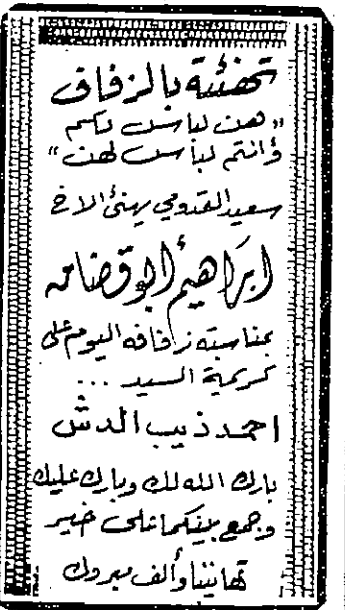 تهنئة بالزفاف
"هن لباس لكم
وأنتم لباس لهن"
سعيد القدومي يهنئ الاخ
ابراهيم أبو قضامه
بمناسبة زفافه اليوم على
كريمة السيد ...
احمد ذيب الدش
بارك الله لك وبارك عليك
وجمع بينكما على خير
تهانينا وألف مبروك